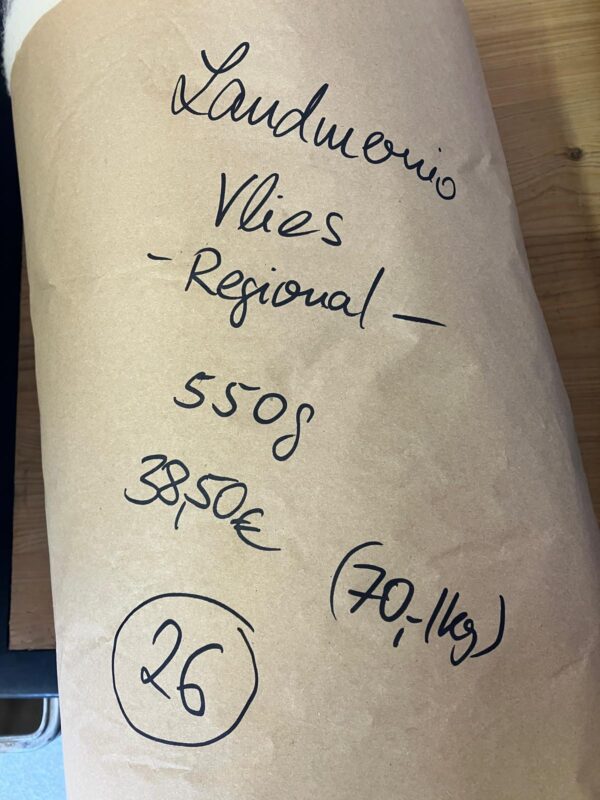 Landmerino
Vlies
- Regional -
550g
38,50€
(70,-/kg)
26